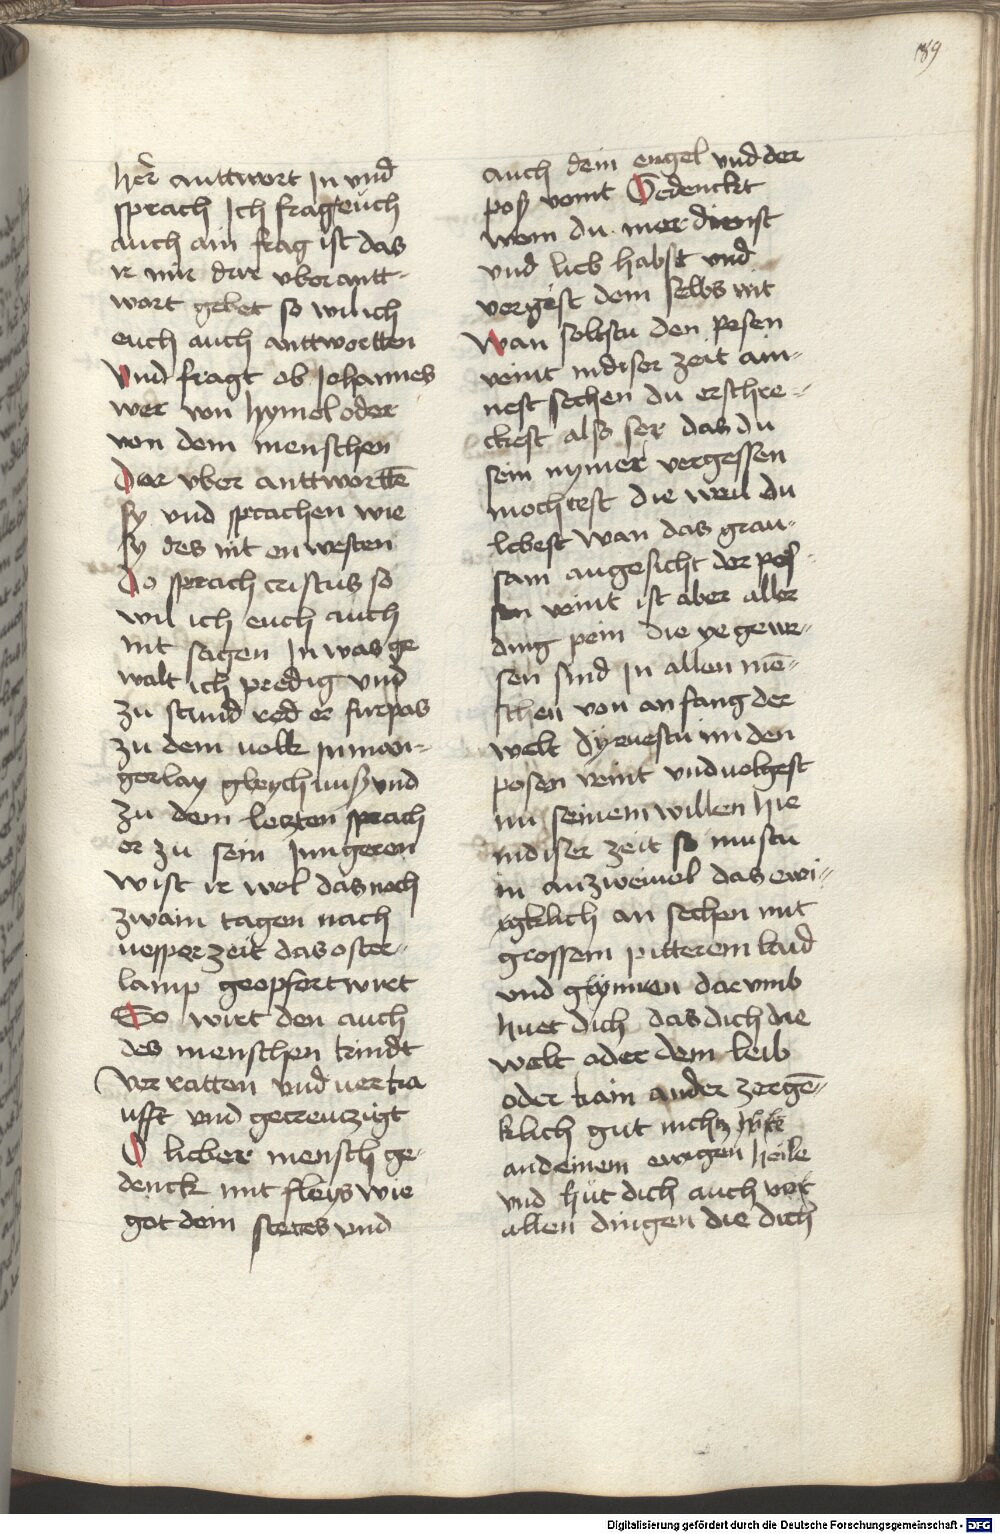 189
her̃ anttwort in vnd
sprach Ich frag euch
auch ain frag ist das
ir mir dar vber antt-
wort gebet so wil ich
euch auch anttwortten
Vnd fragt ob Johannes
wer von hymel oder
von dem menschen
Dar vber anttwortt̄e
sy vnd sprachen wie
sy des nit en westen
Do sprach cristus so
wil ich euch auch
nit sagen In was ge
walt ich predig vnd
zu stund red er furpas
zu dem volk in man-
gerlay gleychnuß vnd
zu dem letzten sprach
er zu sein Jungeren
wist ir wol das noch
zwain tagen nach
vesper zeit das oster-
lamp geopfert wirt
So wirt den auch
des menschen kindt
verratten vnd verka
ufft vnd gecreuzigt
O lieber mensch ge-
denck mit fleys wie
got dein stetes vnd
auch dein engel vnd der
poß veint Gedenckt
wem du mer dienst
vnd lieb habst vnd
vergist dein selbs nit
Wan soltstu den pesen
veint in diser zeit ain-
nest sechen du erschre-
ckest also ser das du
sein nymer vergessen
mochtest die weil du
lebest wan das grau-
sam angesicht der pos-
sen veint ist aber aller
ding pein die ye gewe-
sen sind in allen mē-
schen von anfang der
welt dyenestu im den
posen veint vnd volgest
im seinem willen hie
in diser zeit so mustu
in an zweiuel das ewi-
gklich an sechen mit
grossem pitterem laid
vnd grymen dar vmb
huet dich das dich die
welt oder dem leib
oder kain ander zergē-
klich gut nicht
an deinem ewigen heile
vnd hüt dich auch vor
allen dingen die dich
Digitalisierung gefördert durch die Deutsche Forschungsgemeinschaft - DFG